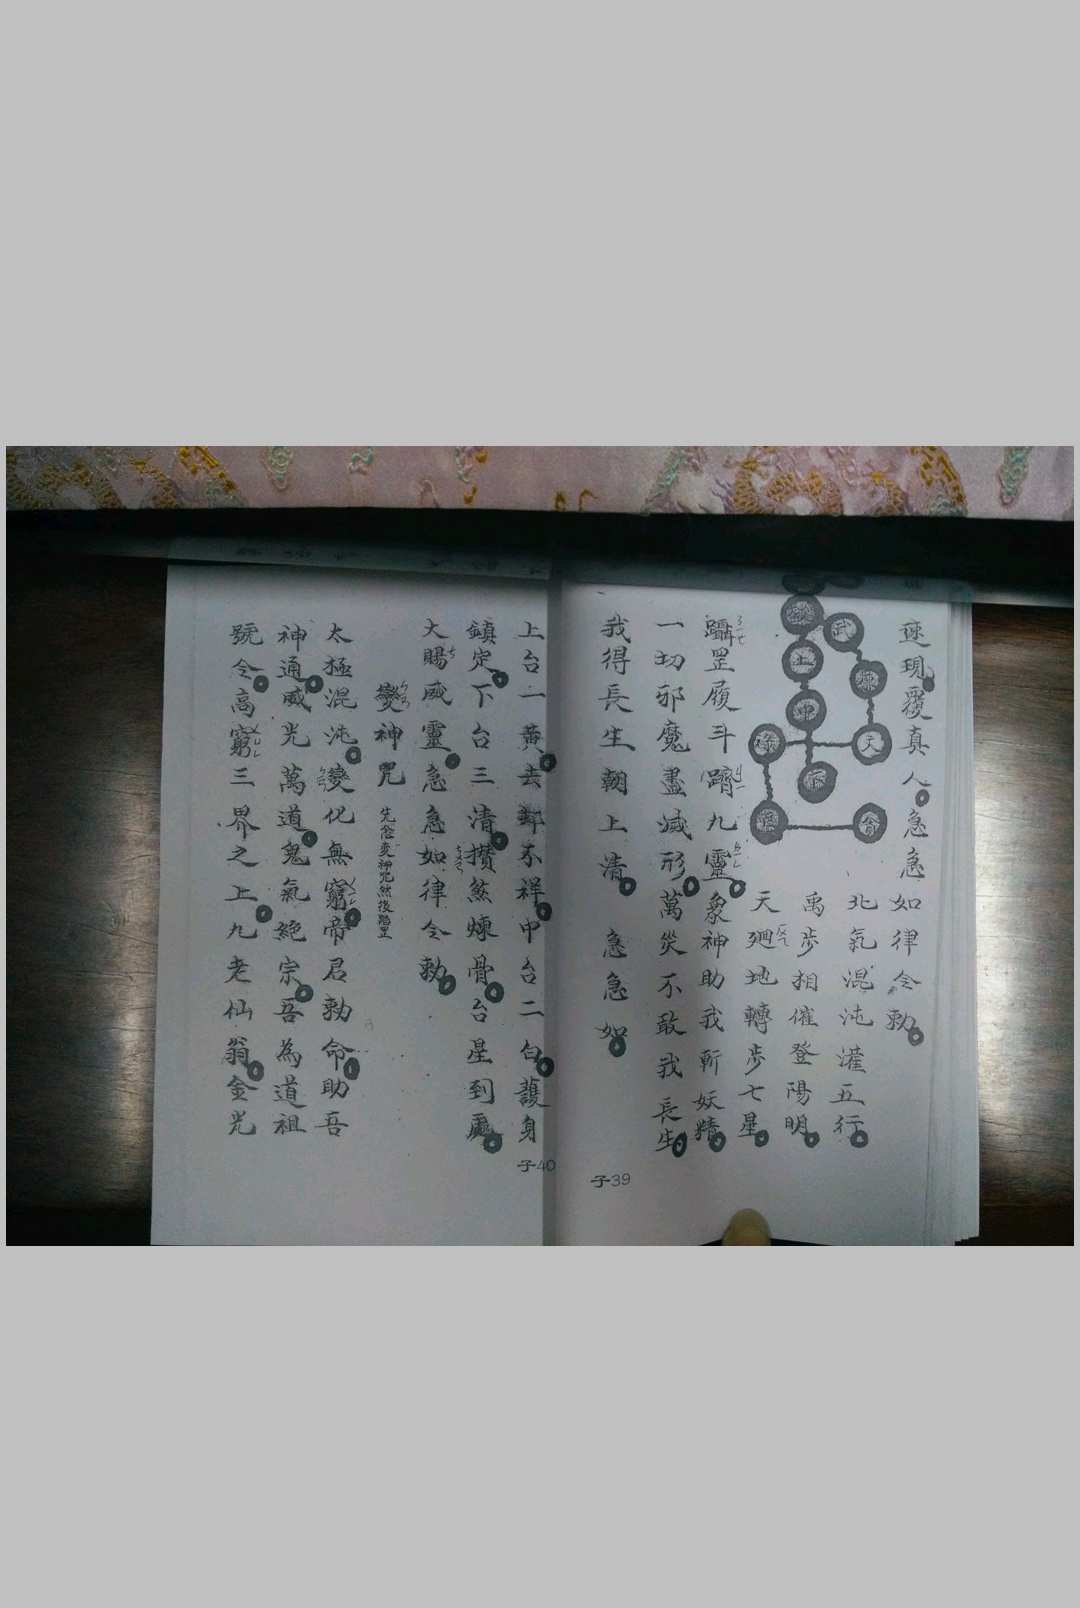 速現覆真人急急如律令勅
北氣混沌灌五行
禹步相催登陽明
天廻地轉步七星
躡罡履斗躋九靈衆神助我斬妖精
一切邪魔盡滅形萬災不敢我長生
我得長生朝上清急急如
武
上
中
祿
天
子39
上台一黃去 不祥中台二白護身
鎮定下台三清攢煞煉骨台星到處
大賜威靈急急如律令勅
變神咒 先念变神咒然後踏罡
太極混沌變化無窮帝君勅命助吾
神通威光萬道鬼氣絕宗吾為道祖
號令高窮三界之上九老仙翁金光
子40